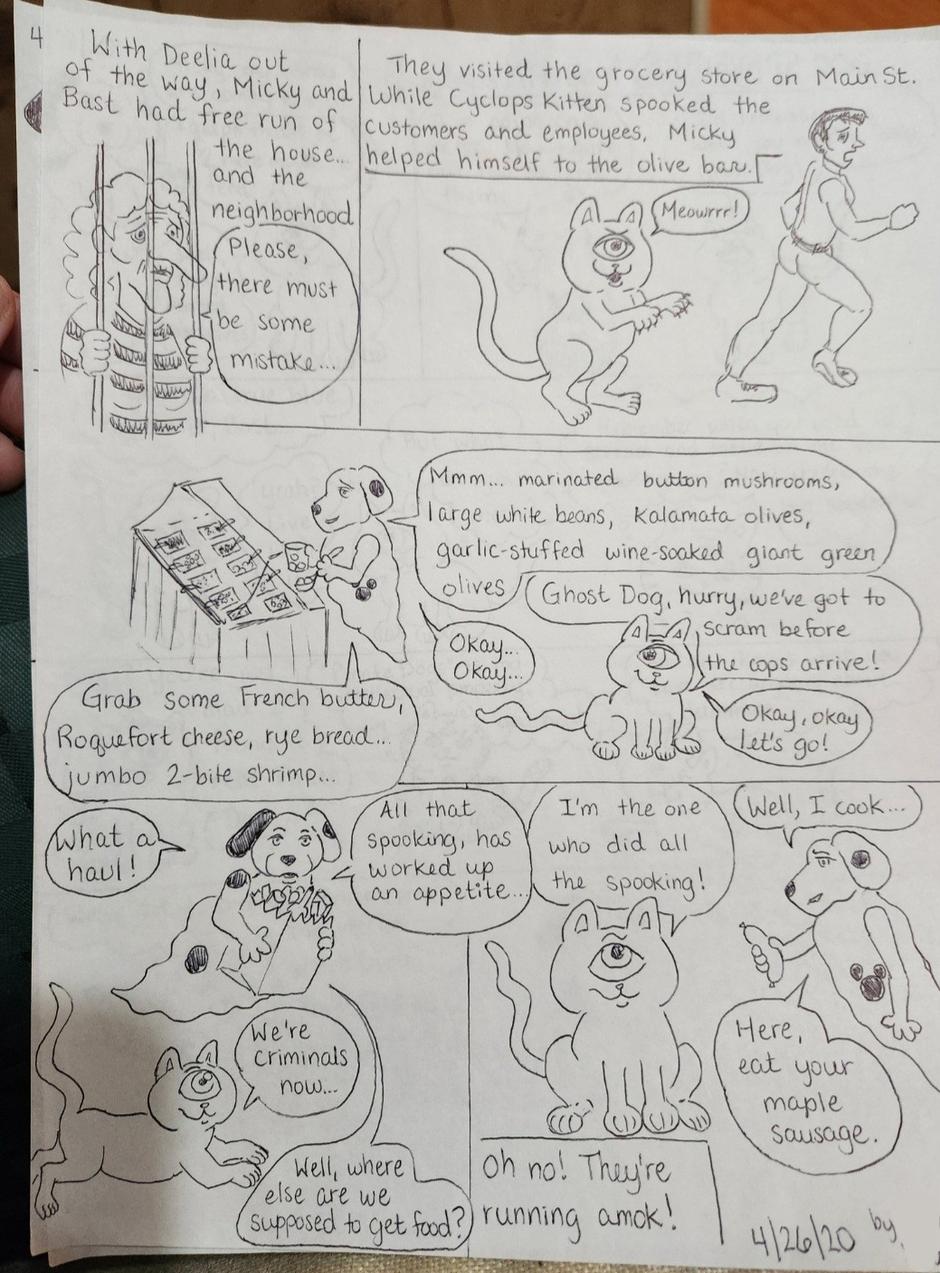 4
With Deelia out
of the way, Micky and
Bast had free run of
the house...
and the
neighborhood
Please,
there must
be some
mistake...
They visited the grocery store on Main St.
While Cyclops Kitten spooked the
customers and employees, Micky
helped himself to the olive bar.
Meowrrr!
Mmm... marinated button mushrooms,
large white beans, Kalamata olives,
garlic-stuffed wine-soaked giant green
olives
Ghost Dog, hurry, we've got to
scram before
the cops arrive!
Okay...
Okay...
Okay, okay
let's go!
Grab some French butter,
Roquefort cheese, rye bread...
jumbo 2-bite shrimp...
What a
haul!
All that
spooking, has
worked up
an appetite...
We're
criminals
now...
Well, where
else are we
supposed to get food?
I'm the one
who did all
the spooking!
Well, I cook...
Here,
eat your
maple
sausage.
Oh no! They're
running amok!
4/26/20 by